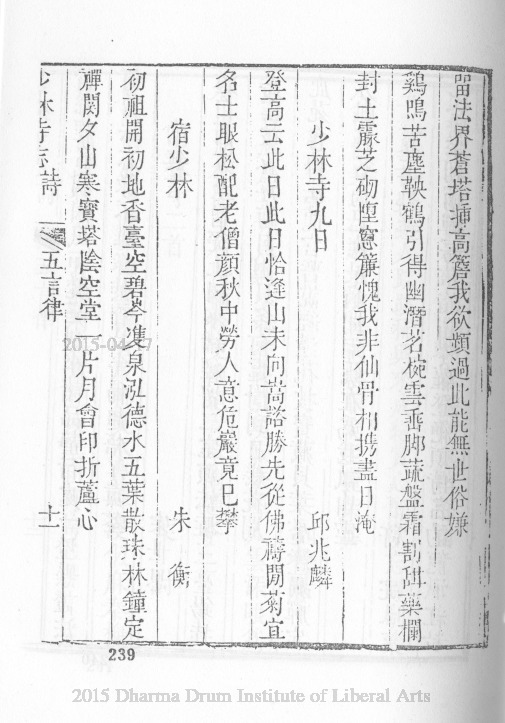 留法界蒼塔揷高簷我欲頻過此能無世俗嫌
鷄鳴苦塵鞅鶴引得幽潛茗椀雲垂脚蔬盤霜割甜藥欄
封土霞芝砌墮窓簾愧我非仙骨相携盡日淹
少林寺九日 邱兆麟
登高云此日此日恰逢山未向嵩諮勝先從佛禱閒菊宜
名士眼松配老僧顏秋中勞人意危巖竟巳攀
宿少林 朱衡
初祖開初地香臺空碧岑隻泉泓德水五葉散珠林鐘定
禪関夕山寒寶塔陰空堂一片月會印折蘆心
少林寺志 詩 五言律 十一
239
2015-04-
2015 Dharma Drum Institute of Liberal Arts